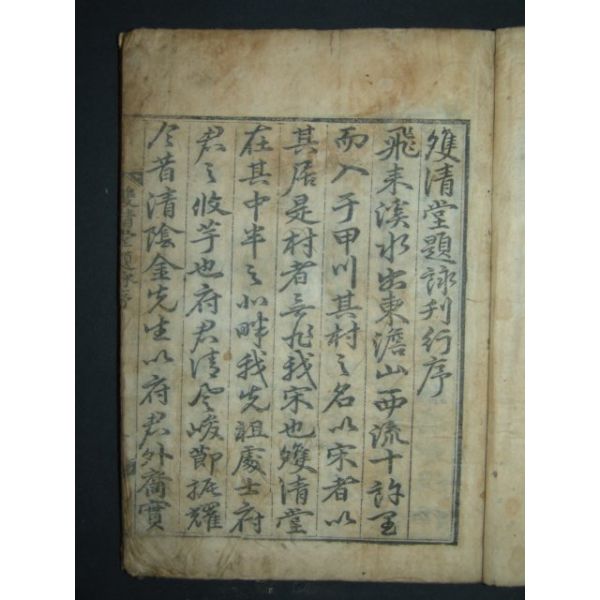 雙淸堂題詠刊行序
飛來溪水出東澹山西流十許里
而入于甲川其村之名以宋者以
其居是村者無非我宋也雙淸堂
在其中半之北畔我先祖處士府
君之攸芋也府君淸風峻節振耀
今昔淸陰金先生以府君外裔實
雙淸堂題序